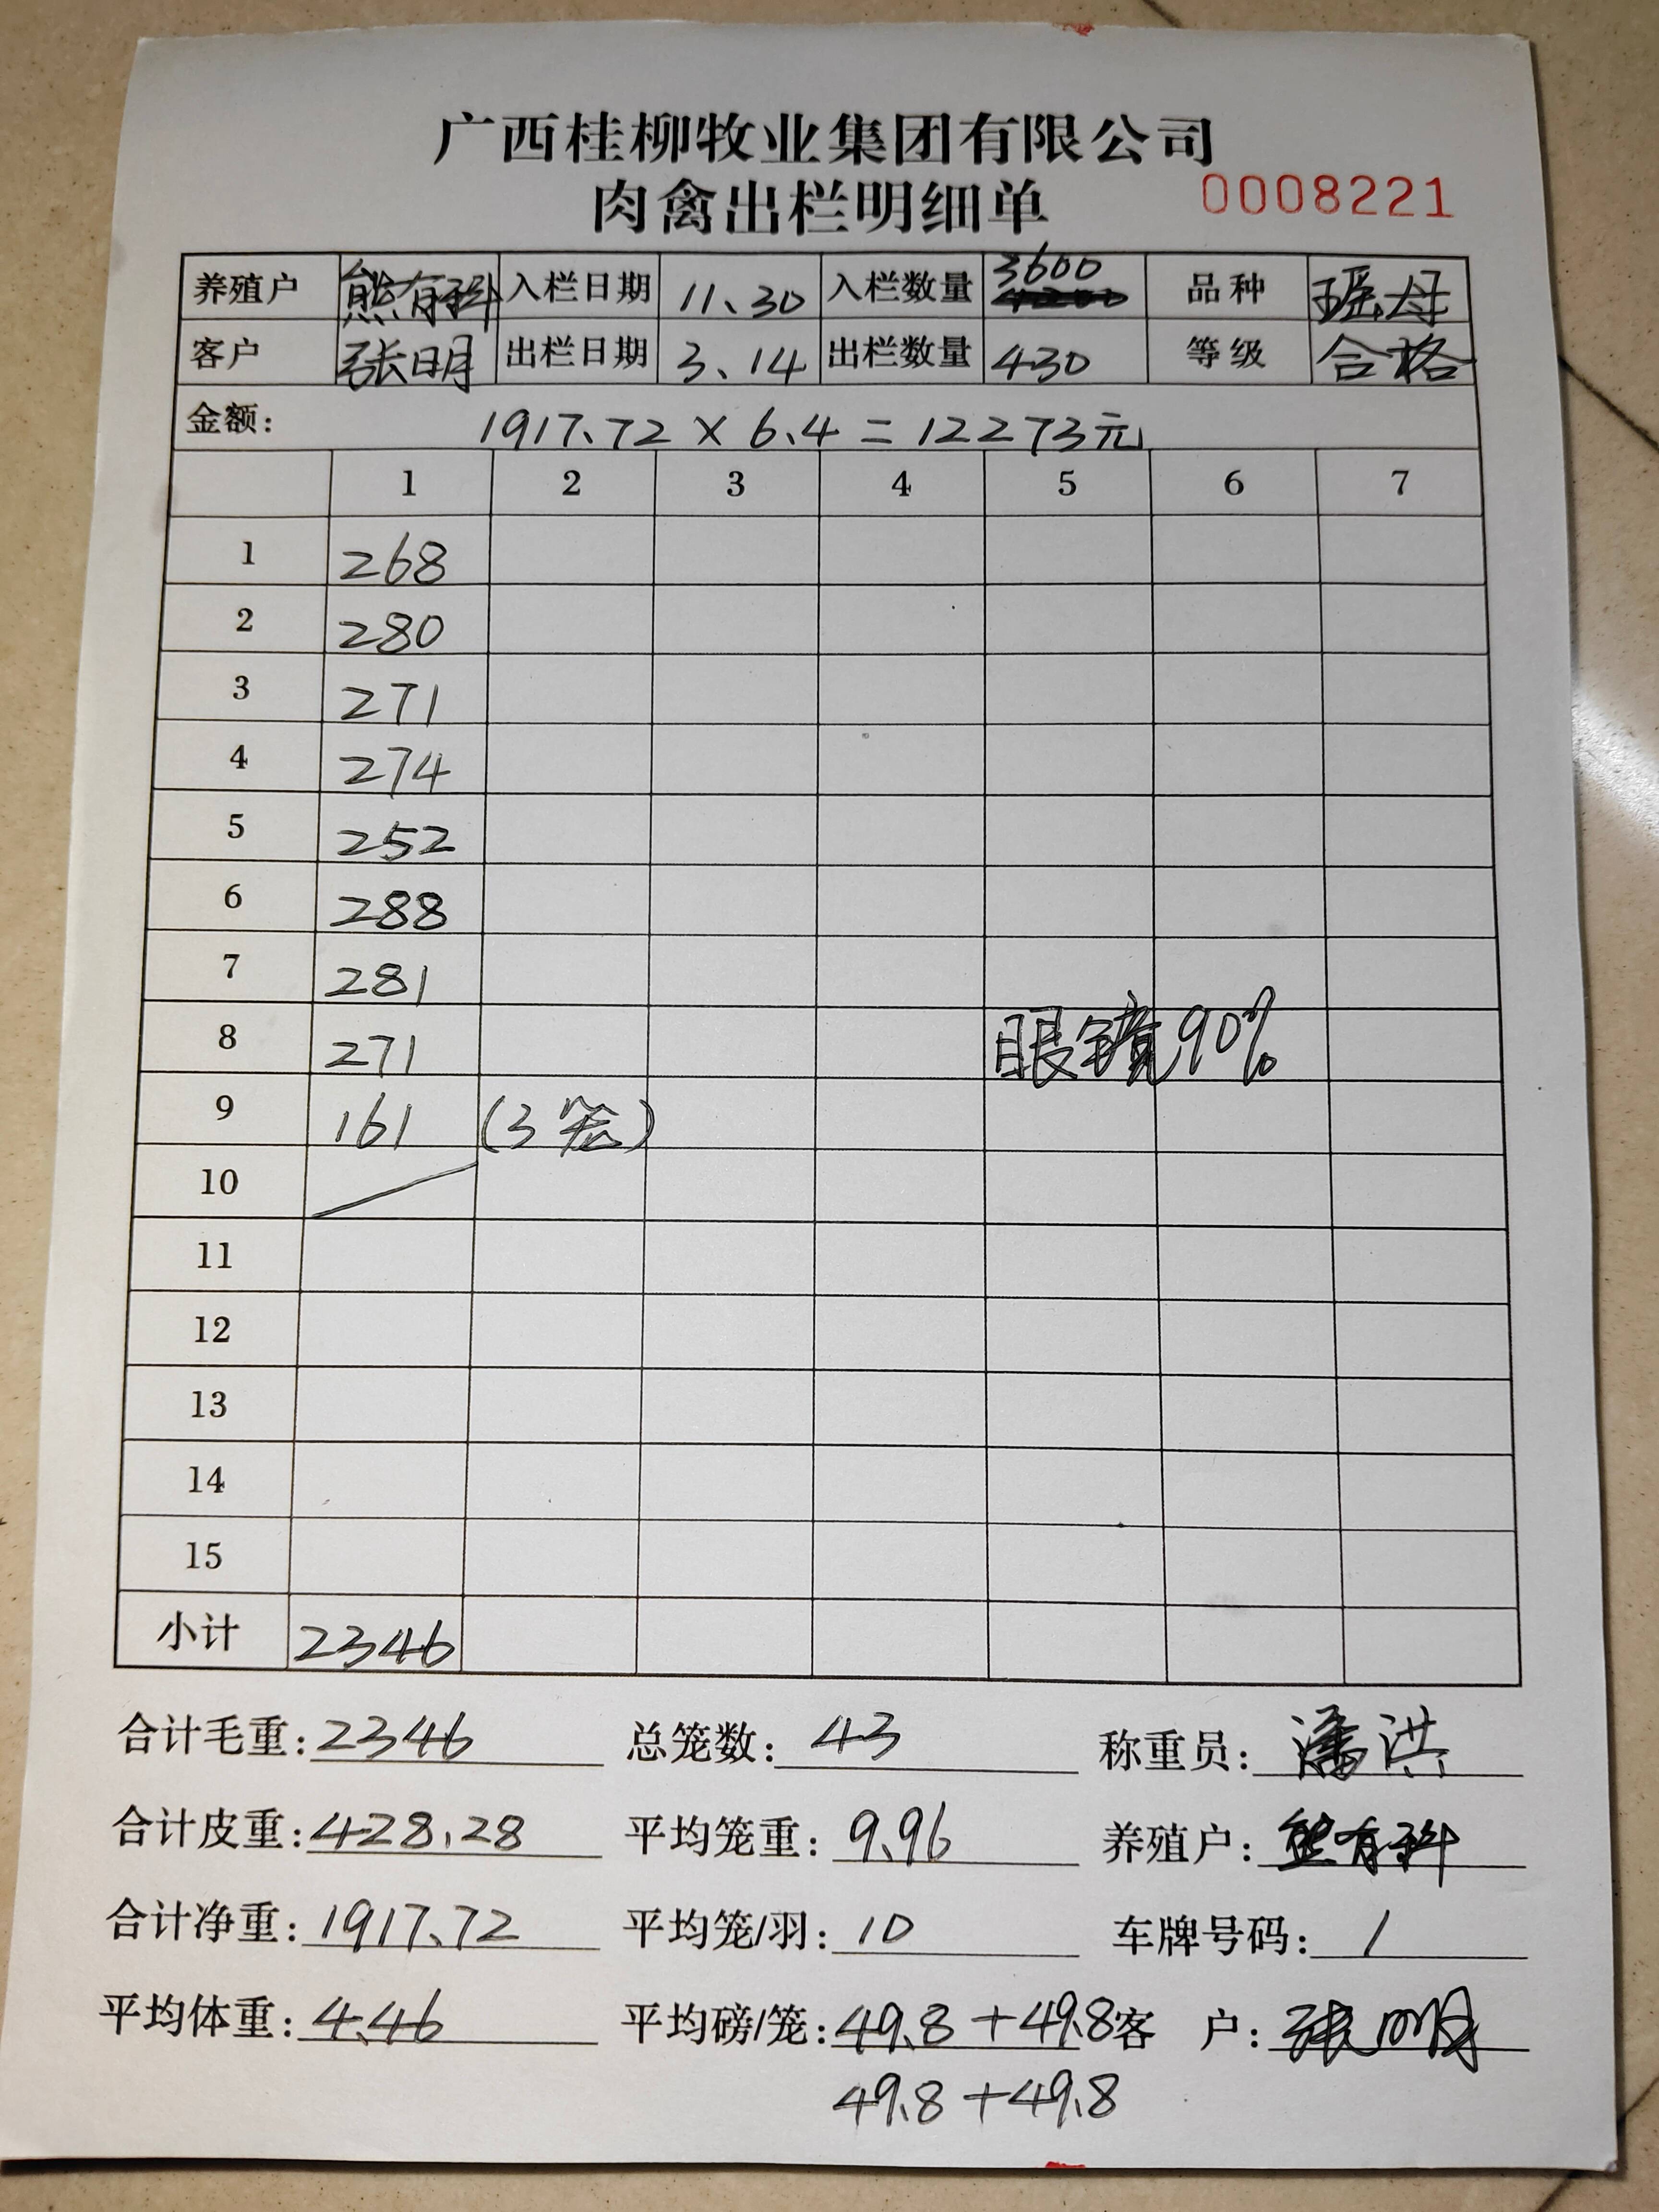 广西桂柳牧业集团有限公司
肉禽出栏明细单 0008221
养殖户 熊有科 入栏日期 11、30 入栏数量 3600 品种 瑶母
客户 张明 出栏日期 3、14 出栏数量 430 等级 合格
金额: 1917.72 × 6.4 = 12273元
1 2 3 4 5 6 7
1 268
2 280
3 271
4 274
5 252
6 288
7 281
8 271 眼镜90%
9 161 (3笼)
10
11
12
13
14
15
小计 2346
合计毛重: 2346 总笼数: 43 称重员: 潘洪
合计皮重: 428.28 平均笼重: 9.96 养殖户: 熊有科
合计净重: 1917.72 平均笼/羽: 10 车牌号码: /
平均体重: 4.46 平均磅/笼: 49.8 + 49.8 客 户: 张明
49.8 + 49.8